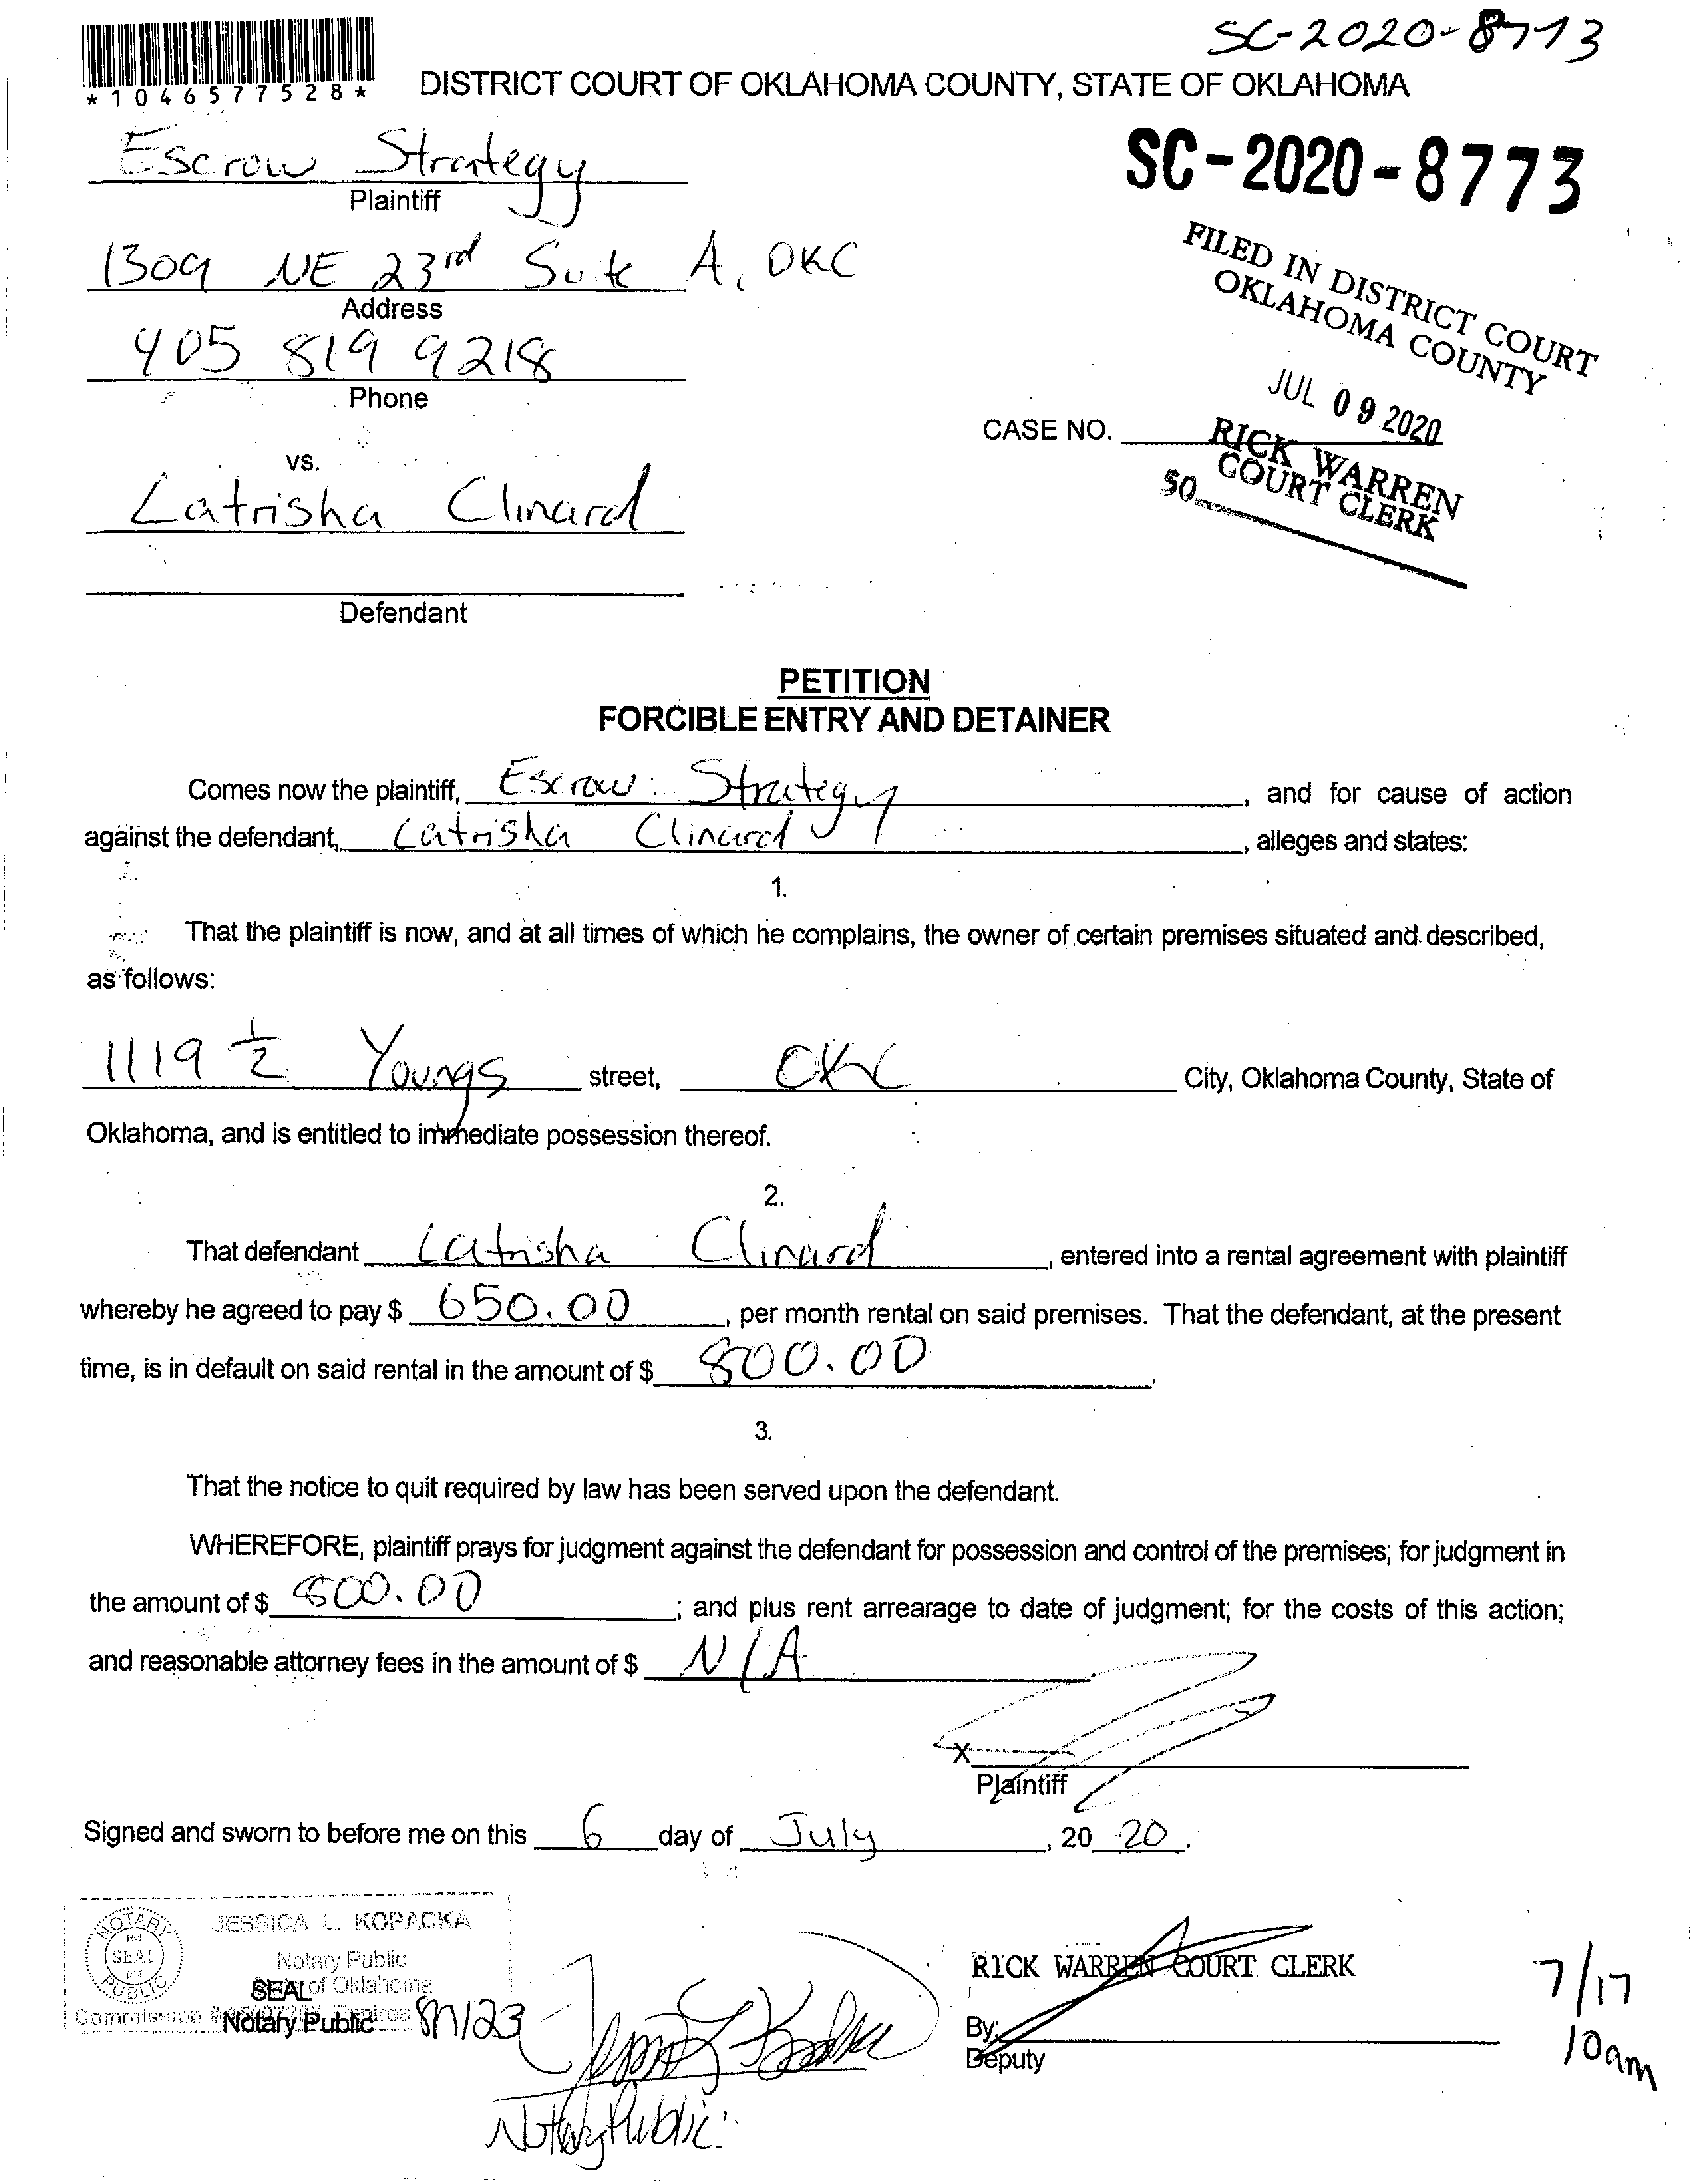 SC-2020-8773
*1046577528*
DISTRICT COURT OF OKLAHOMA COUNTY, STATE OF OKLAHOMA
Escrow Strategy
Plaintiff
SC-2020-8773
1309 NE 23rd Suite A, OKC
Address
FILED IN DISTRICT COURT
OKLAHOMA COUNTY
405 819 9218
Phone
JUL 09 2020
CASE NO.
RICK WARREN
COURT CLERK
50
vs.
Latrisha Clinard
Defendant
PETITION
FORCIBLE ENTRY AND DETAINER
Comes now the plaintiff, Escrow Strategy, and for cause of action
against the defendant, Latrisha Clinard, alleges and states:
1.
That the plaintiff is now, and at all times of which he complains, the owner of certain premises situated and described,
as follows:
1119 ½ Youngs street, OKC City, Oklahoma County, State of
Oklahoma, and is entitled to immediate possession thereof.
2.
That defendant Latrisha Clinard, entered into a rental agreement with plaintiff
whereby he agreed to pay $ 650.00, per month rental on said premises. That the defendant, at the present
time, is in default on said rental in the amount of $ 800.00.
3.
That the notice to quit required by law has been served upon the defendant.
WHEREFORE, plaintiff prays for judgment against the defendant for possession and control of the premises; for judgment in
the amount of $ 800.00; and plus rent arrearage to date of judgment; for the costs of this action;
and reasonable attorney fees in the amount of $ N/A
X
Plaintiff
Signed and sworn to before me on this 6 day of July, 20 20.
NOTARY
SEAL
PUBLIC
JESSICA L. KOPACKA
Notary Public
SEAL of Oklahoma
Commission Expires
Notary Public
Notary Public
RICK WARREN COURT CLERK
By:
Deputy
7/17
10am